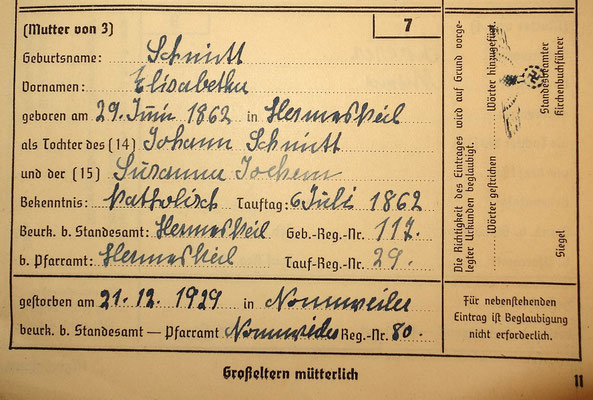 (Mutter von 3) 7
Geburtsname: Schmitt
Vornamen: Elisabetha
geboren am 29. Juni 1862 in Hermeskeil
als Tochter des (14) Johann Schmitt
und der (15) Susanna Jochem
Bekenntnis: Katholisch Tauftag: 6 Juli 1862
Beurk. b. Standesamt: Hermeskeil Geb.-Reg.-Nr. 117.
b. Pfarramt: Hermeskeil Tauf-Reg.-Nr. 29.
gestorben am 21.12.1929 in Nonnweiler
beurk. b. Standesamt — Pfarramt Nonnweiler Reg.-Nr. 80.
Die Richtigkeit des Eintrages wird auf Grund vorge-
legter Urkunden beglaubigt.
Wörter gestrichen Wörter hinzugefügt.
Siegel
Standesbeamter
Kirchenbuchführer
Für nebenstehenden
Eintrag ist Beglaubigung
nicht erforderlich.
Großeltern mütterlich
11